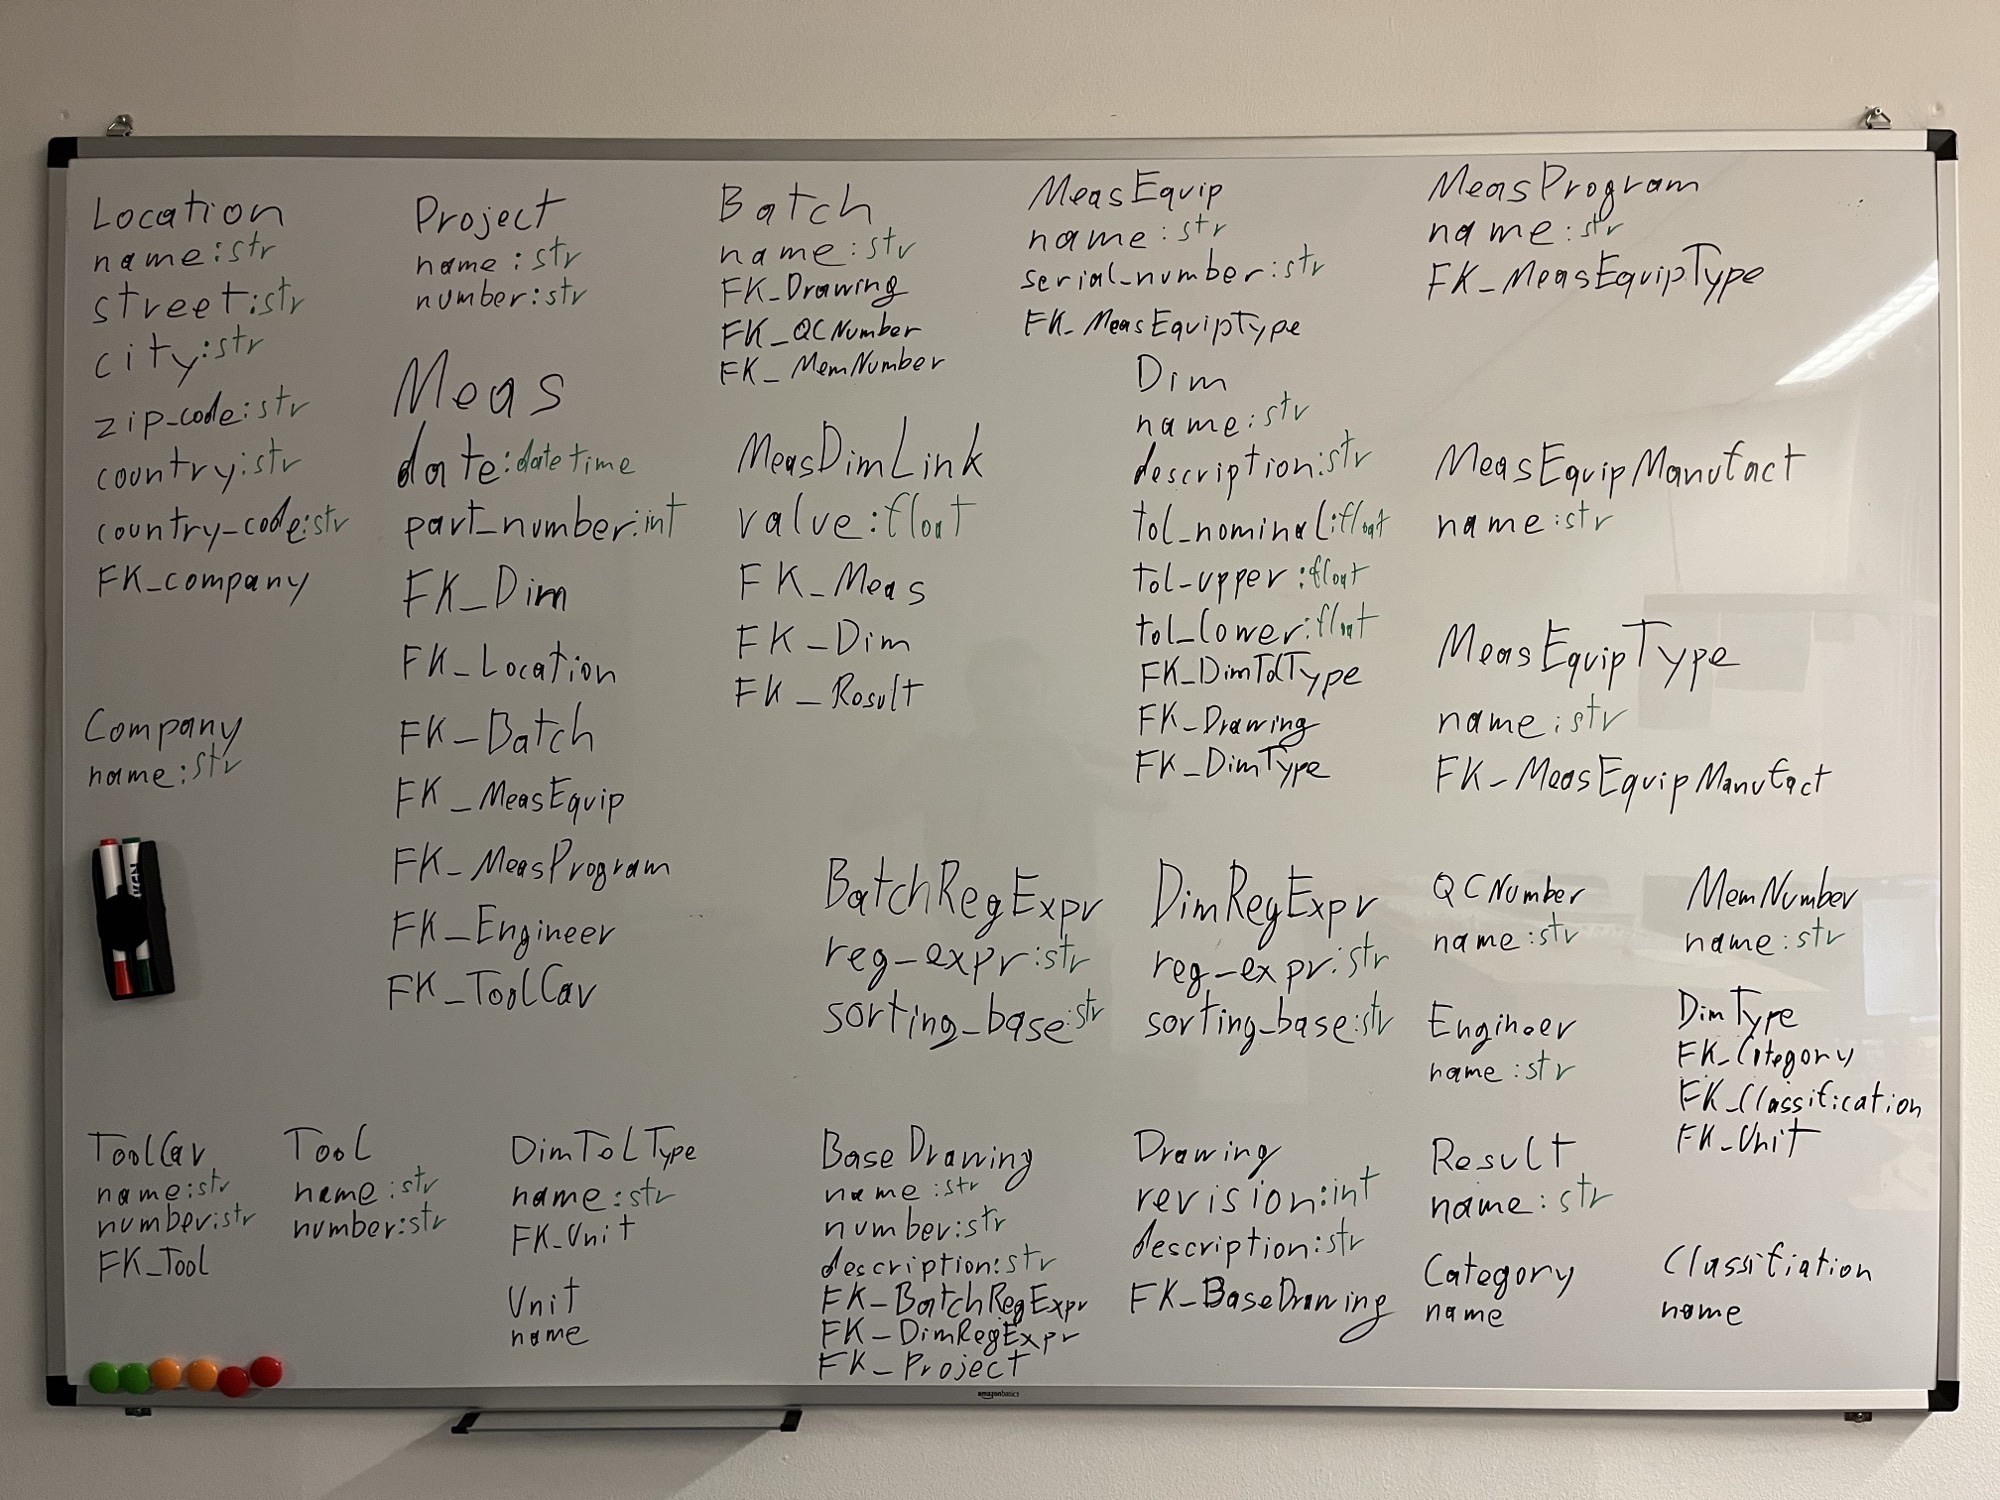 Location
name:str
street:str
city:str
zip_code:str
country:str
country_code:str
FK_company
Company
name:str
Project
name:str
number:str
Meas
date:datetime
part_number:int
FK_Dim
FK_Location
FK_Batch
FK_MeasEquip
FK_MeasProgram
FK_Engineer
FK_ToolCav
Batch
name:str
FK_Drawing
FK_QCNumber
FK_MemNumber
MeasDimLink
value:float
FK_Meas
FK_Dim
FK_Result
MeasEquip
name:str
serial_number:str
FK_MeasEquipType
Dim
name:str
description:str
tol_nominal:float
tol_upper:float
tol_lower:float
FK_DimTolType
FK_Drawing
FK_DimType
MeasProgram
name:str
FK_MeasEquipType
MeasEquipManufact
name:str
MeasEquipType
name:str
FK_MeasEquipManufact
BatchRegExpr
reg_expr:str
sorting_base:str
DimRegExpr
reg_expr:str
sorting_base:str
QCNumber
name:str
MemNumber
name:str
Engineer
name:str
DimType
FK_Category
FK_Classification
FK_Unit
ToolCav
name:str
number:str
FK_Tool
Tool
name:str
number:str
DimTolType
name:str
FK_Unit
Unit
name
BaseDrawing
name:str
number:str
description:str
FK_BatchRegExpr
FK_DimRegExpr
FK_Project
Drawing
revision:int
description:str
FK_BaseDrawing
Result
name:str
Category
name
Classifiation
name
amazonbasics